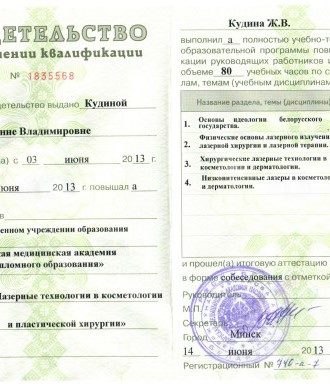 ДЕТЕЛЬСТВО
ении квалификации
№ 1835568
детельство выдано Кудиной
нне Владимировне
а) с 03 июня 2013 г.
июня 2013 г. повышал а
венном учреждении образования
кая медицинская академия
пломного образования»
Лазерные технологии в косметологии
и пластической хирургии»
Кудина Ж.В.
выполнил а полностью учебно-т
образовательной программы пов
кации руководящих работников и
объеме 80 учебных часов по с
лам, темам (учебным дисциплинам
Название раздела, темы (дисциплины
1. Основы идеологии белорусского
государства.
2. Физические основы лазерного излучен
лазерной хирургии и лазерной терапии.
3. Хирургические лазерные технологии в
косметологии и дерматологии.
4. Низкоинтенсивные лазеры в косметолог
и дерматологии.
и прошел(а) итоговую аттестацию
в форме собеседования с отметкой
Руководитель
М.П.
Секретарь
Город Минск
14 июня 2013
Регистрационный №